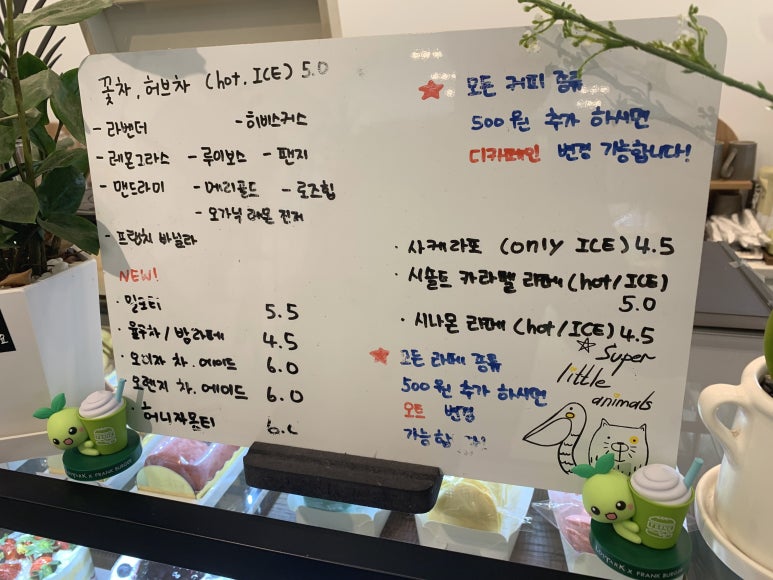 꽃차, 허브차 (hot. ICE) 5.0
- 라벤더 - 히비스커스
- 레몬그라스 - 루이보스 - 팬지
- 맨드라미 - 메리골드 - 로즈힙
- 오가닉 레몬 진저
- 프렌치 바닐라
NEW!
· 밀크티 5.5
· 율무차 / 밤라떼 4.5
· 오미자 차. 에이드 6.0
· 오렌지 차. 에이드 6.0
· 허니자몽티
모든 커피 종류
500원 추가 하시면
디카페인 변경 가능합니다!
· 사케라또 (only ICE) 4.5
· 시솔트 카라멜 라떼 (hot/ICE)
5.0
· 시나몬 라떼 (hot/ICE) 4.5
모든 라떼 종류
500원 추가 하시면
오트 변경
가능합
Super
little
animals
FRANK BURGER
X FRANK BURGER